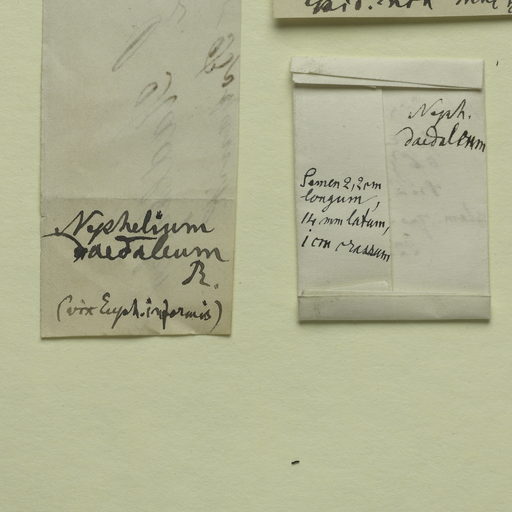 Nephelium
daedaleum
R.
(vix Euph. informis)
Neph.
daedaleum
Semen 2,2 cm
longum,
14 mm latum,
1 cm crassum